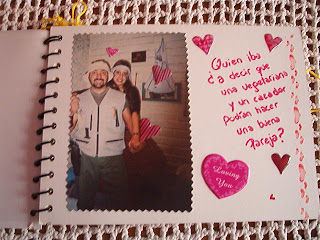 Quien iba
¿a decir que
una vegetariana
y un cazador
podrian hacer
una buena
Pareja?
Loving
You